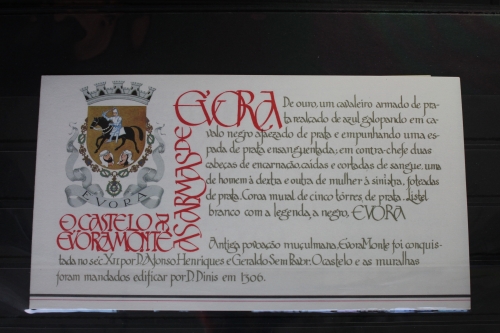 EVORA
O CASTELO DE
EVORAMONTE
AS ARMAS DE
EVORA
De ouro, um cavaleiro armado de pra-
ta realçado de azul galopando em ca-
valo negro ajaezado de prata e empunhando uma es-
pada de prata ensanguentada; em contra-chefe duas
cabeças de encarnação, caidas e cortadas de sangue, uma
de homem à dextra e outra de mulher à sinistra, toteadas
de prata. Coroa mural de cinco tórres de prata. Listel
branco com a legenda, a negro, EVORA
Antiga povoação muçulmana, EvoraMonte foi conquis-
tada no séc. XII por D. Afonso Henriques e Geraldo Sem Pavor. O castelo e as muralhas
foram mandados edificar por D. Dinis em 1306.